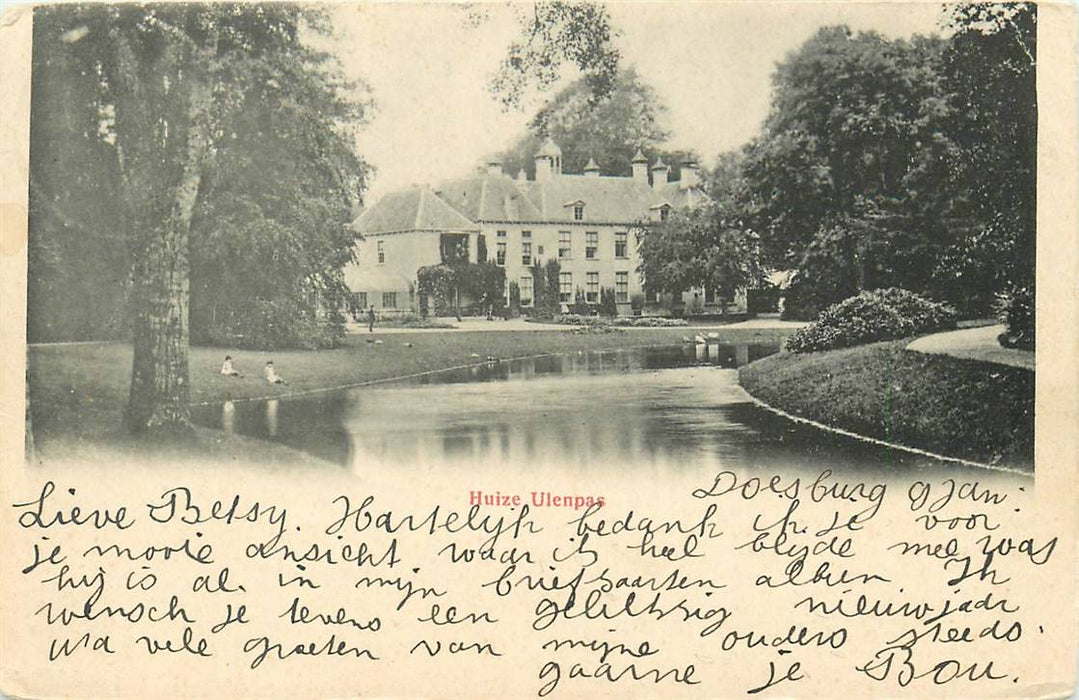 Huize Ulenpas
Doesburg 9 Jan.
Lieve Betsy. Hartelijk bedank ik je voor
je mooie ansicht waar ik heel blijde mee was
hij is al in mijn briefkaarten album Ik
wensch je tevens een gelukkig nieuwjaar
na vele groeten van mijne ouders steeds.
gaarne je Bou.